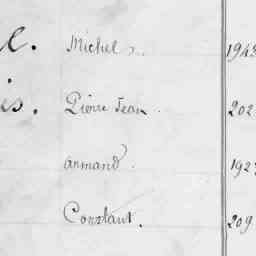 e. Michel 1943
is. Pierre Jean. 202
Armand. 192
Constant. 209